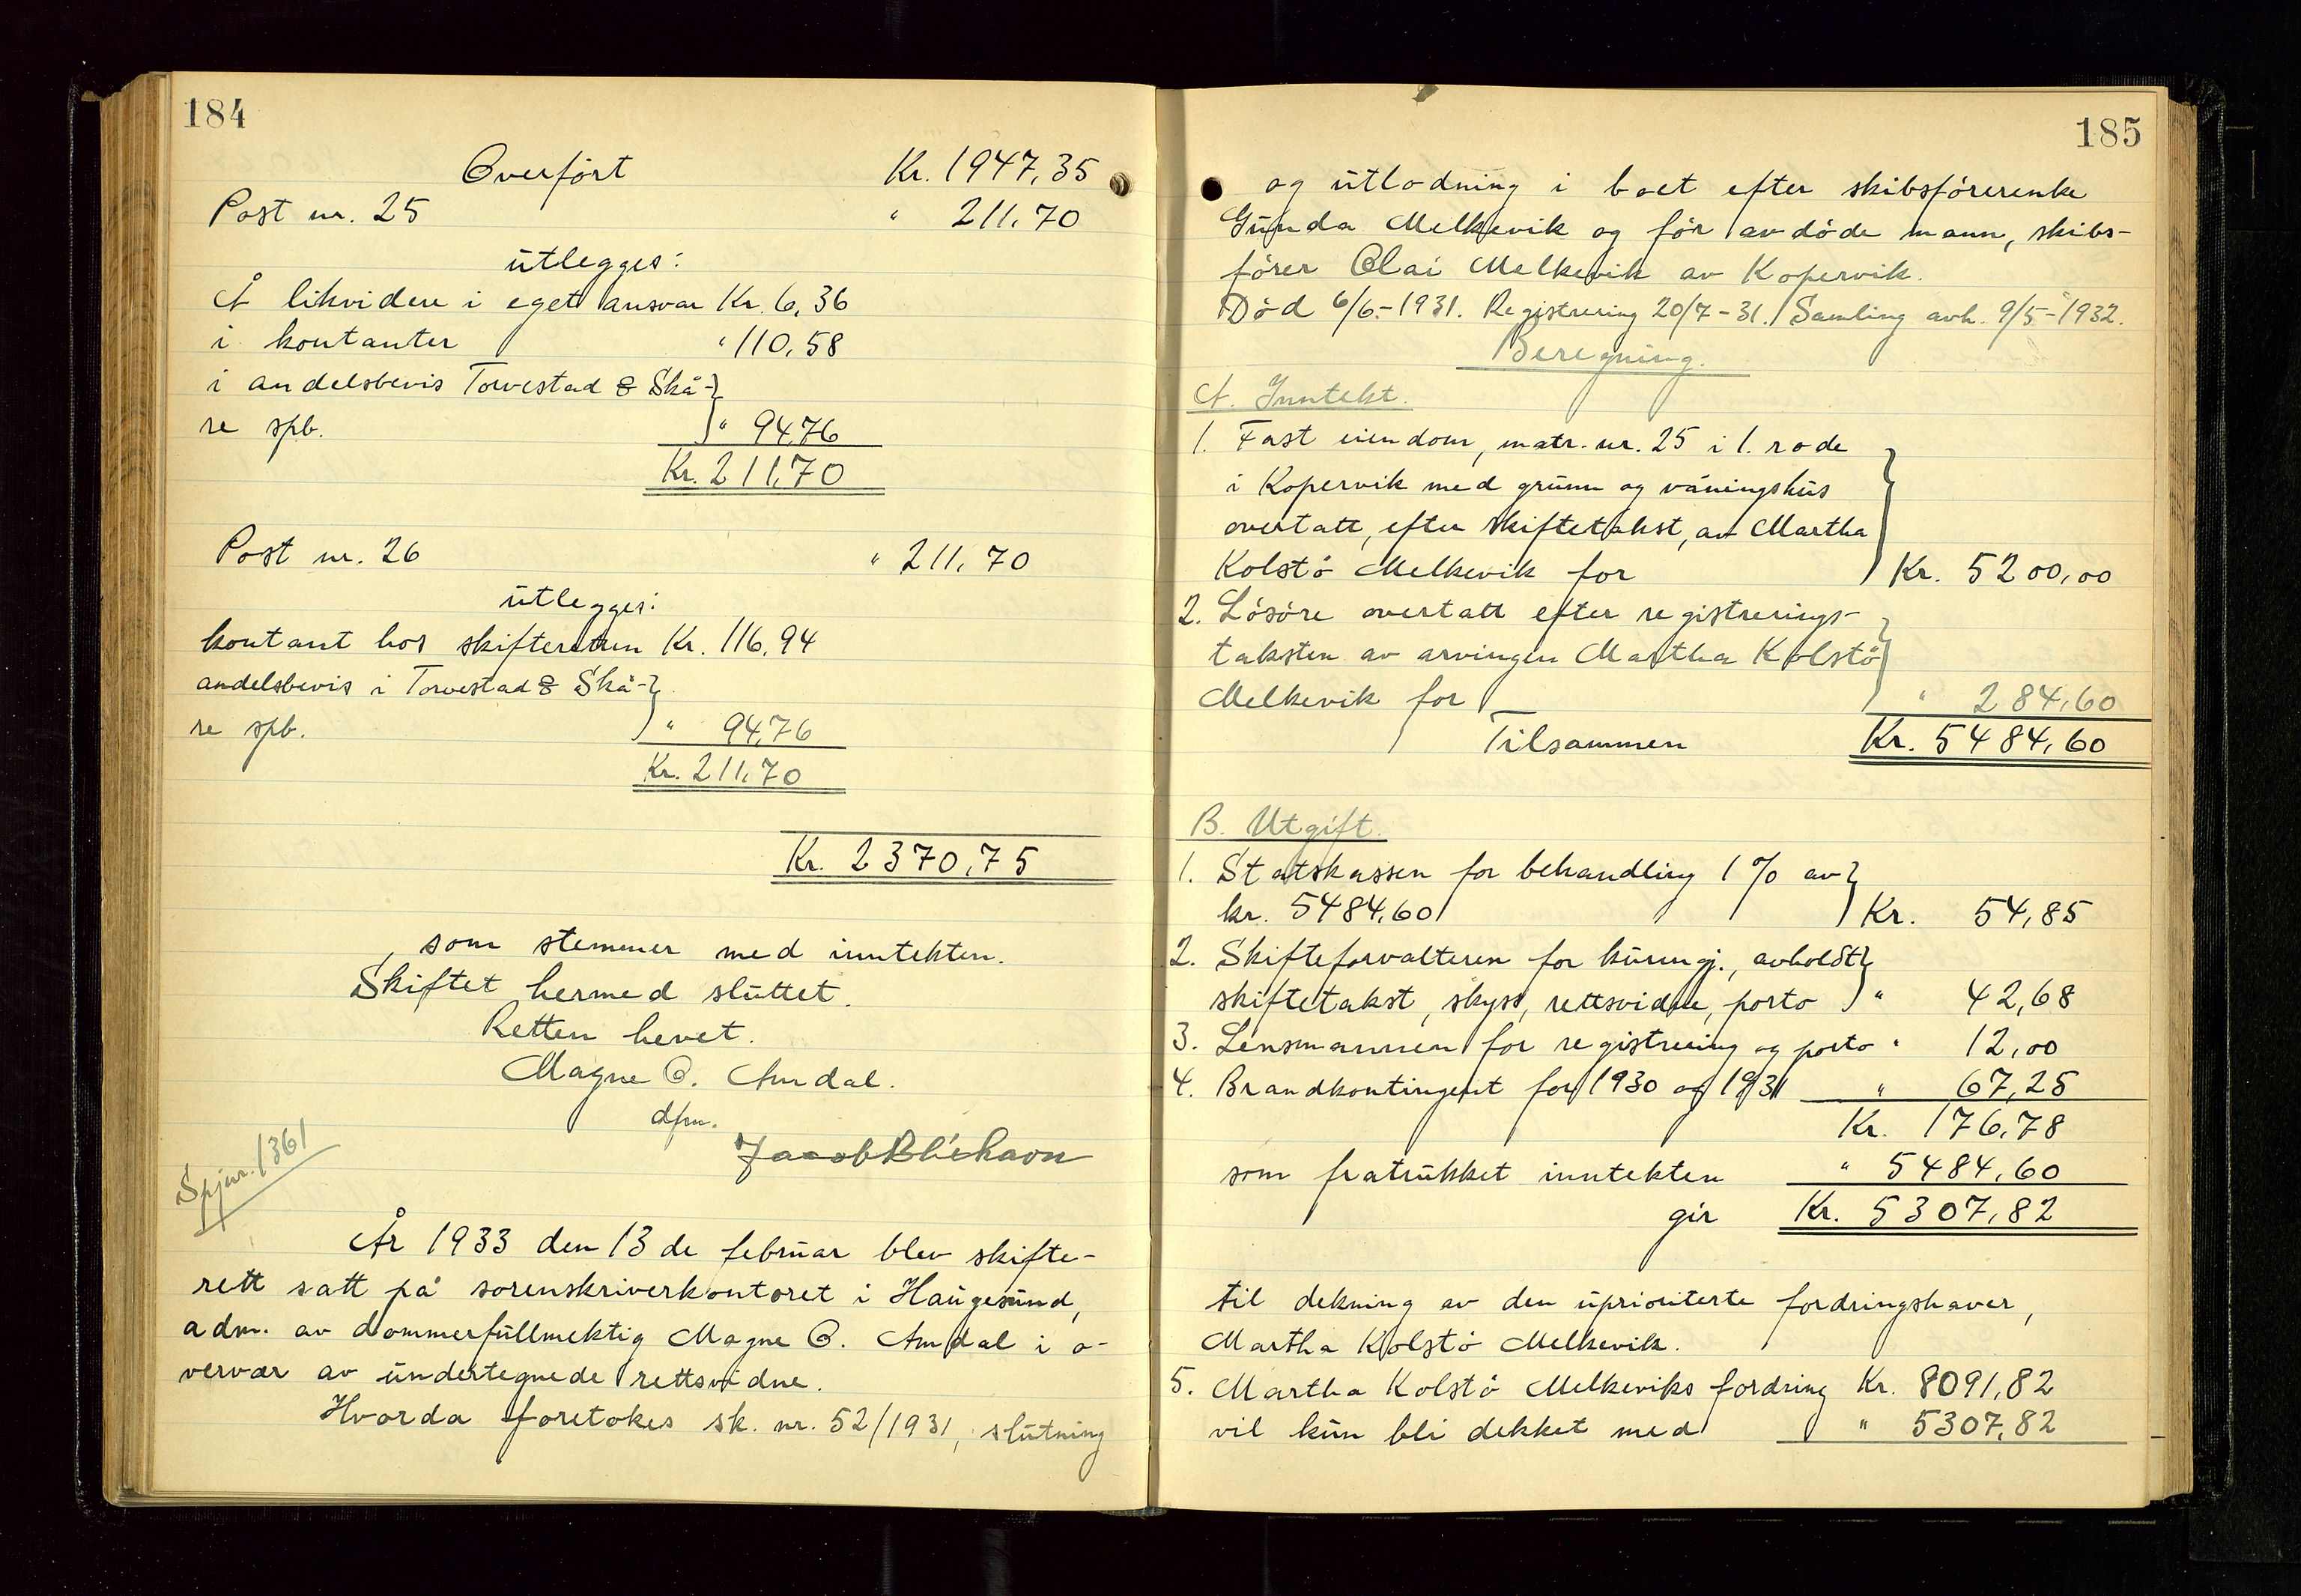 184
Overført Kr. 1947,35
Post nr. 25 " 211,70
utlegges:
Å likvidere i eget ansvar Kr. 6,36
i kontanter " 110,58
i andelsbevis Torvestad & Skå-
re spb. " 94,76
Kr. 211,70
Post nr. 26 " 211,70
utlegges:
kontant hos skifteretten Kr. 116,94
andelsbevis i Torvestad & Skå-
re spb. " 94,76
Kr. 211,70
Kr. 2370,75
, som stemmer med inntekten.
Skiftet hermed sluttet.
Retten hevet.
Magne O. Amdal.
dfm.
Jacob
Spjnr. 1361
År 1933 den 13de februar blev skifte-
rett satt på sorenskriverkontoret i Haugesund,
adm. av dommerfullmektig Magne O. Amdal i o-
vervær av undertegnede rettsvidne.
Hvorda foretokes sk. nr. 52/1931, slutning
185
og utlodning i boet efter skibsførerenke
Gunda Melkevik og før avdøde mann, skibs-
fører Olai Melkevik av Kopervik.
Død 6/6-1931. Registrering 20/7-31. Samling avh. 9/5-1932.
Beregning.
A. Inntekt.
1. Fast eiendom, matr. nr. 25 i 1. rode
i Kopervik med grunn og våningshus
overtatt, efter skiftetakst, av Martha
Kolstø Melkevik for Kr. 5200,00
2. Løsøre overtatt efter registrerings-
taksten av arvingen Martha Kolstø
Melkevik for " 284,60
Tilsammen Kr. 5484,60
B. Utgift.
1. Statskassen for behandling 1 % av
kr. 5484,60 Kr. 54,85
2. Skifteforvalteren for kunngj., avholdt
skiftetakst, skyss, rettsvidne, porto " 42,68
3. Lensmannen for registrering og porto " 12,00
4. Brandkontingent for 1930 og 1931 " 67,25
Kr. 176,78
som fratrukket inntekten " 5484,60
gir Kr. 5307,82
til dekning av den uprioriterte fordringshaver,
Martha Kolstø Melkevik.
5. Martha Kolstø Melkeviks fordring Kr. 8091,82
vil kun bli dekket med " 5307,82